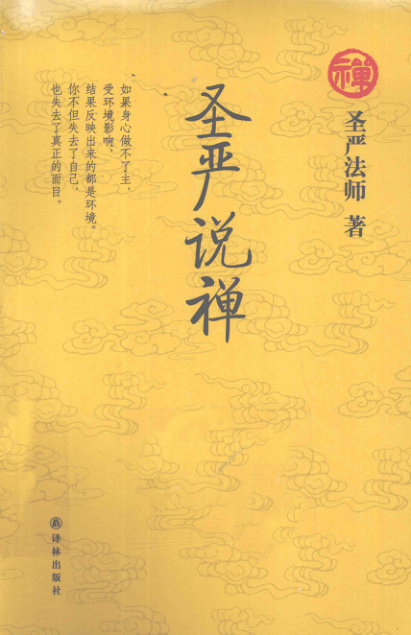 禅
圣严法师 著
圣严说禅
如果身心做不了主，
受环境影响，
结果反映出来的都是环境。
你不但失去了自己，
也失去了真正的面目。
译林出版社